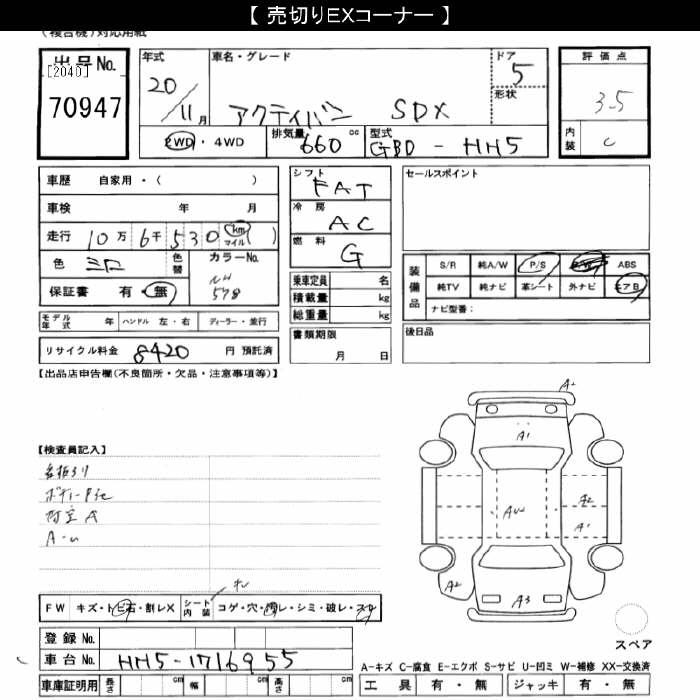 【 売切りEXコーナー 】
(複合機)対応用紙
出品No.
[2040]
70947
年式 20/11月
車名・グレード アクティバン SDX
ドア 5
形状
2WD・4WD
排気量 660 cc
型式 GBD - HH5
評価点 3.5
内装 C
車歴 自家用・( )
車検 年 月
走行 10万 6千 530 km マイル ( )
色 シロ
色替
カラーNo. NH 578
保証書 有・無
モデル年式 年 ハンドル 左・右 ディーラー・並行
リサイクル料金 8420 円 預託済
シフト FAT
冷房 AC
燃料 G
乗車定員 名
積載量 kg
総重量 kg
書類期限
月 日
セールスポイント
装備品
S/R 純A/W P/S P/W ABS
純TV 純ナビ 革シート 外ナビ エアB
ナビ型番:
後日品
【出品店申告欄(不良箇所・欠品・注意事項等)】
【検査員記入】
A2
A1
AW
A2
A1
A2
A3
FW キズ・トビ石・割レX シート内装 コゲ・穴・汚レ・シミ・破レ・スレ
登録 No.
車台 No. HH5-1716955
車庫証明用 長さ cm 幅 cm 高さ cm
スペア
A-キズ C-腐食 E-エクボ S-サビ U-凹ミ W-補修 XX-交換済
工具 有・無 ジャッキ 有・無